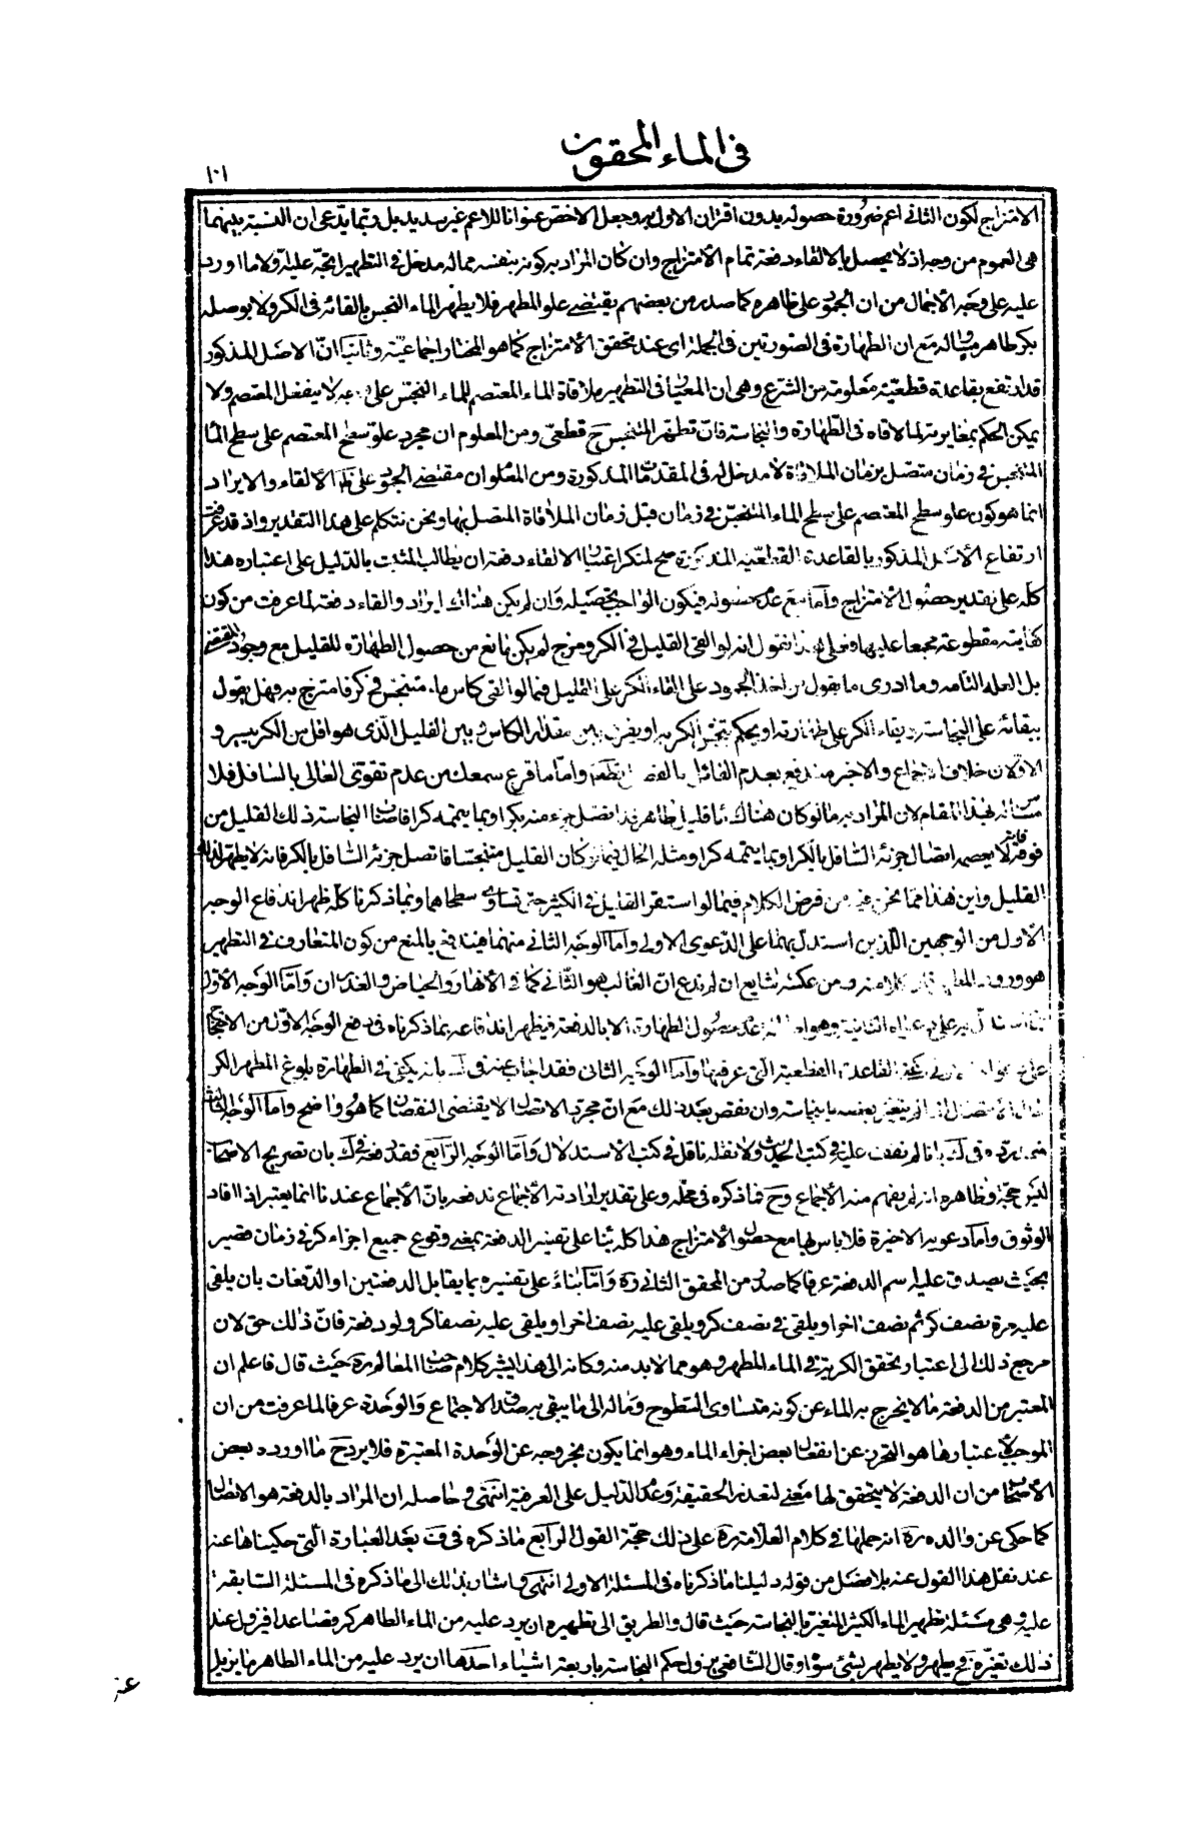 في الماء المحقون
١٠١
الامتزاج لكون الثاني اعم ضرورة حصوله بدون اقتران الاول به وجعل الاخص عنوانا للاعم غير سديد بل ربما يدعى ان النسبة بينهما
هي العموم من وجه اذ لا يحصل بالالقاء دفعة تمام الامتزاج وان كان المراد به كونه بنفسه مما له مدخل في التطهير اتجه عليه ولا ما اورد
عليه على وجه الاجمال من ان الجمود على ظاهره كما صدر من بعضهم يقتضي علو المطهر فلا يطهر الماء النجس بالقائه في الكر ولا بوصله
بكر طاهر مع ان الطهارة في الصورتين في الجملة اي عند تحقق الامتزاج كما هو المختار اجماعية وثانيا ان الاصل المذكور
قد اندفع بقاعدة قطعية معلومة من الشرع وهي ان المعيار في التطهير ملاقاة الماء المعتصم للماء النجس على وجه لا ينفعل المعتصم ولا
يمكن الحكم بمغايرته لما لاقاه في الطهارة والنجاسة فان تطهر المتنجس ح قطعي ومن المعلوم ان مجرد علو سطح المعتصم على سطح الماء
المتنجس في زمان متصل بزمان الملاقاة لا مدخل له في المقدمات المذكورة ومن المعلوم ان مقتضى الجمود على الالقاء والايراد
انما هو كون علو سطح المعتصم على سطح الماء المتنجس في زمان قبل زمان الملاقاة المتصل بها ونحن نتكلم على هذا التقدير واذ قد عرفت
ارتفاع الاصل المذكور بالقاعدة القطعية المذكورة صح لمنكر اعتبار الالقاء دفعة ان يطالب المثبت بالدليل على اعتباره هذا
كله على تقدير حصول الامتزاج واما مع عدم حصوله فيكون الواجب تحصيله وان لم يكن هناك ايراد والقاء دفعة لما عرفت من كون
كفايته مقطوعة مجمعا عليها وعلى هذا نقول انه لو القى القليل في الكر ومزج لم يكن مانع من حصول الطهارة للقليل مع وجود المقتضي
بل العلة التامة وما ادري ما يقول من اخذ الجمود على القاء الكر على القليل فيما لو القى كاس ماء متنجس في كر فامتزج به فهل يقول
ببقائه على النجاسة وبقاء الكر على طهارته او يحكم بتنجس الكر به او يفرق بين مقدار الكاس وبين القليل الذي هو اقل من الكر بيسير و
الاولان خلاف الاجماع والاخير مندفع بعدم القائل بالفصل قطعا واما ما قرع سمعك من عدم تقوى العالي بالسافل فلا
مساس له بهذا المقام لان المراد به ما لو كان هناك ماء قليل طاهر فاتصل جزء منه بكر او بما يتمه كرا فاصاب النجاسة ذلك القليل من
فوقه فانه لا يعصمه اتصال جزئه السافل بالكر او بما يتمه كرا ومثله الحال فيما لو كان القليل متنجسا فاتصل جزئه السافل بالكر فانه لا يطهر بذلك
القليل واين هذا مما نحن فيه من فرض الكلام فيما لو استقر القليل في الكثير حتى تساوى سطحاهما وبما ذكرنا كله ظهر اندفاع الوجه
الاول من الوجهين اللذين استدل بهما على الدعوى الاولى واما الوجه الثاني منهما فيندفع بالمنع من كون المتعارف في التطهير
هو ورود المطهر كلا منه ومن عكسه شايع ان لم ندع ان الغالب هو الثاني كما في الانهار والحياض والغدران واما الوجه الاول
استدل به على دعواه الثانية وهو عدم حصول الطهارة الا بالدفعة فيظهر اندفاعه بما ذكرناه في دفع الوجه الاول من الاحتجاج
على القاعدة القطعية التي عرفتها واما الوجه الثاني فقد اجاب عنه في بانه يكفي في الطهارة بلوغ المطهر الكر
حال الاتصال اذا لم يتغير بعضه بالنجاسة وان نقص بعد ذلك مع ان مجرد الاتصال لا يقتضي النقصان كما هو واضح واما الوجه الثالث
فيرده في بانا لم نقف عليه في كتب الحديث ولا نقله ناقل في كتب الاستدلال واما الوجه الرابع فقد دفعه في ك بان تصريح الاصحاب
ليس حجة وظاهره انه لم يفهم منه الاجماع وح فما ذكره في محله وعلى تقدير ارادته الاجماع ندفعه بان الاجماع عندنا انما يعتبر اذا افاد
الوثوق واما دعويه الاخيرة فلا باس بها مع حصول الامتزاج هذا كله بناء على تفسير الدفعة بمعنى وقوع جميع اجزاء كر في زمان قصير
بحيث يصدق عليه اسم الدفعة عرفا كما صدر من المحقق الثاني ره واما بناء على تفسيره بما يقابل الدفعتين او الدفعات بان يلقى
عليه مرة نصف كر ثم نصف اخر او يلقى في نصف كر ويلقى عليه نصف اخر او يلقى عليه نصفا كر ولو دفعة فان ذلك حق لان
مرجع ذلك الى اعتبار تحقق الكرية في الماء المطهر وهو مما لا بد منه وكانه الى هذا يشير كلام صاحب المعالم ره حيث قال فاعلم ان
المعتبر من الدفعة ما لا يخرج به الماء عن كونه متساوى السطوح وماله الى ما يبقى به صدق الاجتماع والوحدة عرفا لما عرفت من ان
الموجب لاعتبارها هو التحرز عن انفعال بعض اجزاء الماء وهو انما يكون بخروجه عن الوحدة المعتبرة فلا يرد ح ما اورده بعض
الاصحاب من ان الدفعة لا يتحقق لها معنى لتعذر الحقيقية وعدم الدليل على العرفية انتهى وحاصله ان المراد بالدفعة هو الاتصال
كما حكى عن والده ره انه حملها في كلام العلامة ره على ذلك حجة القول الرابع ما ذكره في ف بعد العبارة التي حكيناها عنه
عند نقل هذا القول عنه بلا فصل من قوله دليلنا ما ذكرناه في المسئلة الاولى انتهى اشار بذلك الى ما ذكره في المسئلة السابقة
عليه وهي مسئلة تطهير الماء الكثير المتغير بالنجاسة حيث قال والطريق الى تطهيره ان يرد عليه من الماء الطاهر كر فصاعدا فيزول عند
ذلك تغيره فح يطهر ولا يطهر بشئ سواه وقال الشافعي يزول حكم النجاسة باربعة اشياء احدها ان يرد عليه من الماء الطاهر ما يزيل